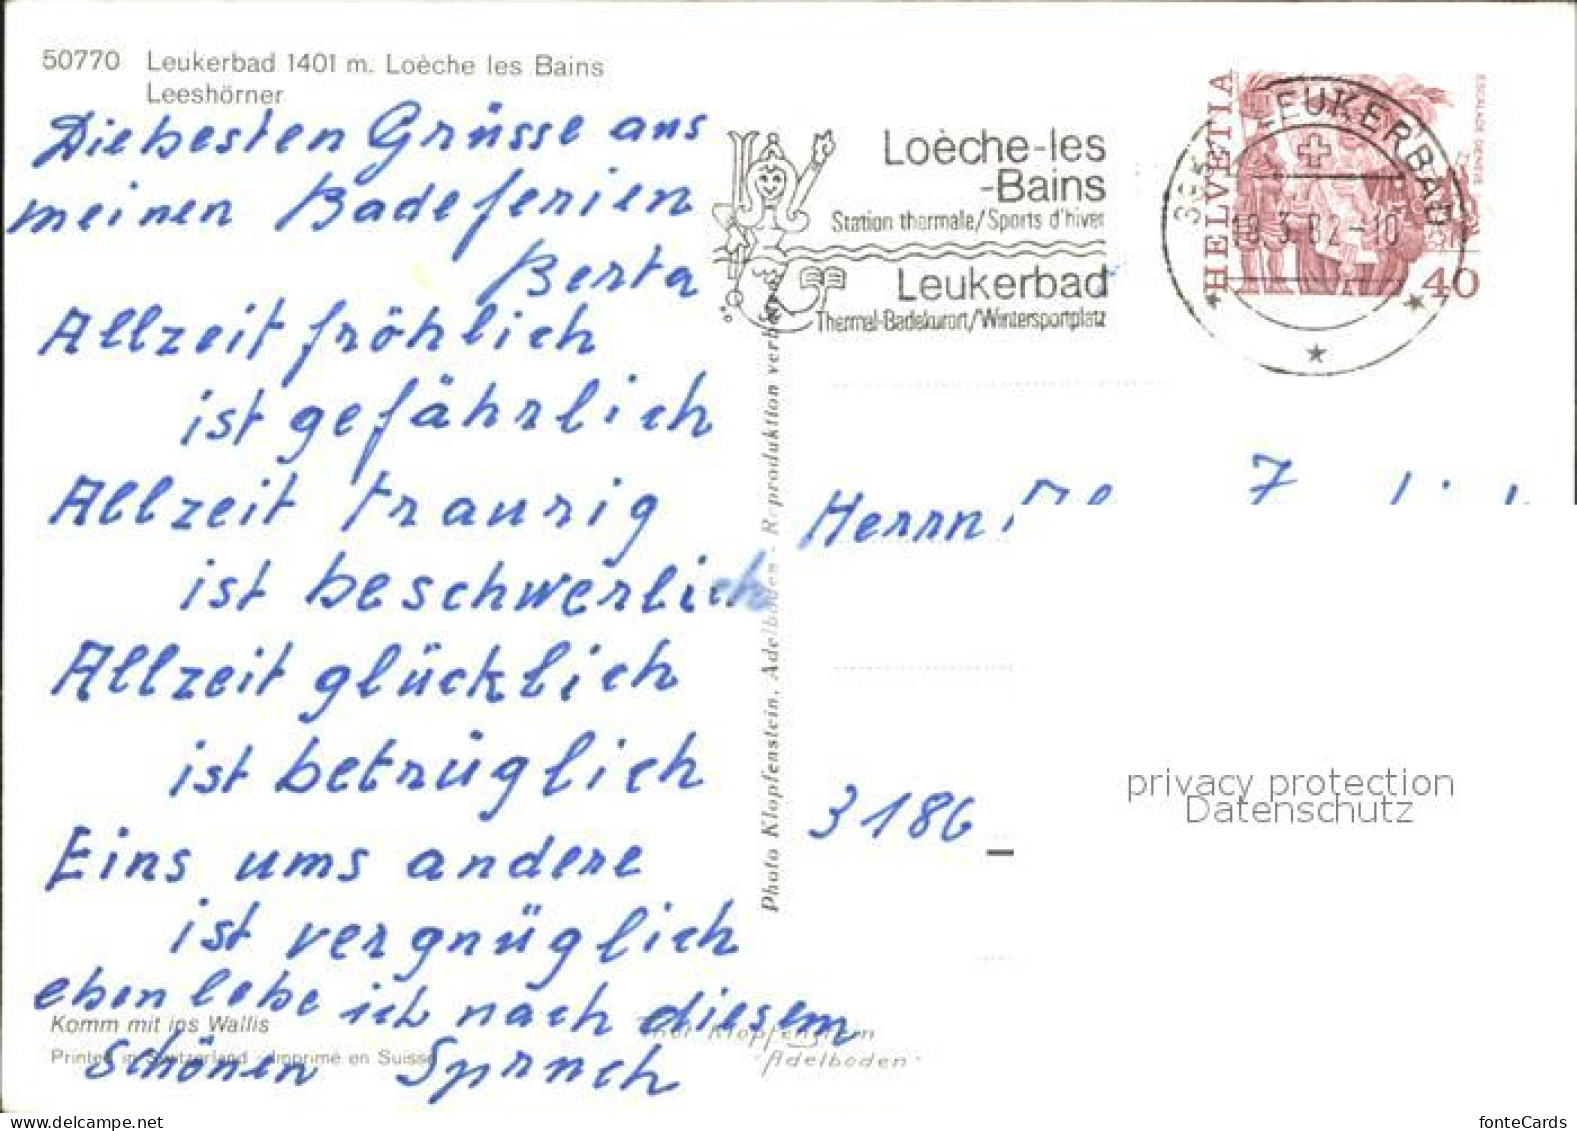 50770 Leukerbad 1401 m. Loèche les Bains
Leeshörner
Die besten Grüsse aus
meinen Badeferien
Berta
Allzeit fröhlich
ist gefährlich
Allzeit traurig
ist beschwerlich
Allzeit glücklich
ist betrüglich
Eins ums andere
ist vergnüglich
eben lebe ich nach diesem
schönen Spruch
Komm mit ins Wallis
Printed in Switzerland - Imprimé en Suisse
Photo Klopfenstein, Adelboden - Reproduktion
Phot Klopfenstein
"Adelboden"
Loèche-les
-Bains
Station thermale/Sports d'hiver
Leukerbad
Thermal-Badekurort/Wintersportplatz
LEUKERBAD
18.3.82-10
HELVETIA
ESCALADE GENÈVE
40
Herrn
3186
privacy protection
Datenschutz
www.delcampe.net
fonteCards